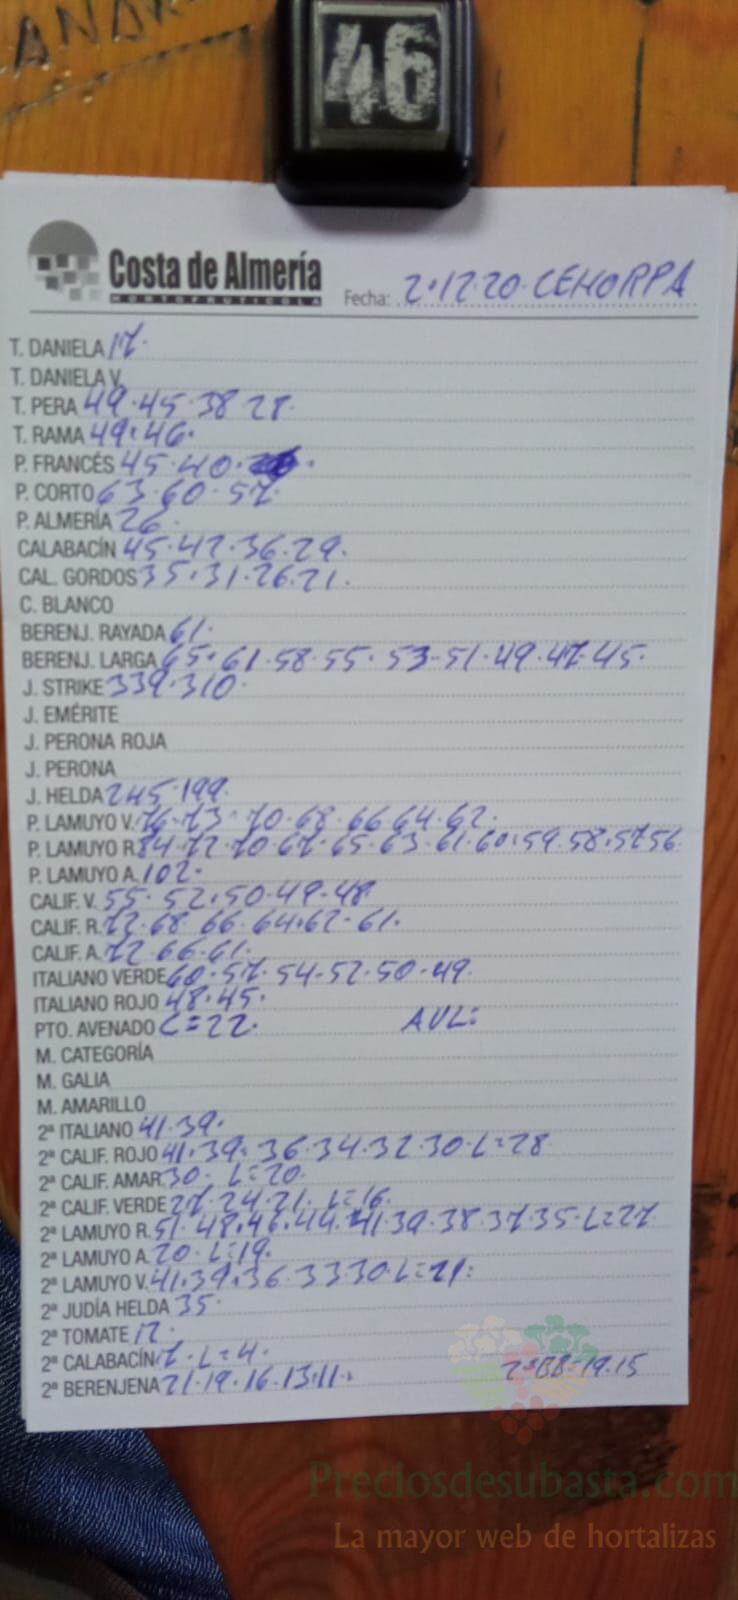 46
Costa de Almería
HORTOFRUTICOLA
Fecha: 2·12 20·CEHORPA
T. DANIELA 17·
T. DANIELA V.
T. PERA 49·45·38 28·
T. RAMA 49·46·
P. FRANCÉS 45·40·
P. CORTO 63·60·57
P. ALMERÍA 26·
CALABACÍN 45·42·36·29·
CAL. GORDOS 35·31·26·21·
C. BLANCO
BERENJ. RAYADA 61·
BERENJ. LARGA 65·61·58·55·53-51·49·47·45·
J. STRIKE 339·310·
J. EMÉRITE
J. PERONA ROJA
J. PERONA
J. HELDA 245·199·
P. LAMUYO V. 76·73·70·68·66 64·62·
P. LAMUYO R. 84·72·70·67·65·63·61·60·59·58·57 56
P. LAMUYO A. 102·
CALIF. V. 55·52·50·49-48
CALIF. R. 72·68·66·64·62·61·
CALIF. A. 72·66·61·
ITALIANO VERDE 60·57·54·52·50·49·
ITALIANO ROJO 48·45·
PTO. AVENADO C=22· AVL:
M. CATEGORÍA
M. GALIA
M. AMARILLO
2ª ITALIANO 41·39·
2ª CALIF. ROJO 41·39·36·34·32·30·L=28
2ª CALIF. AMAR. 30· L=20·
2ª CALIF. VERDE 27·24·21·L=16·
2ª LAMUYO R. 51·48·46·44·41·39·38·37·35·L=27
2ª LAMUYO A. 20·L=19·
2ª LAMUYO V. 41·39·36·33 30·L=21:
2ª JUDÍA HELDA 35·
2ª TOMATE 12·
2ª CALABACÍN 7·L=4·
2ª BERENJENA 21·19·16·13·11· 2ªBB=19·15
Preciosdesubasta.com
La mayor web de hortalizas